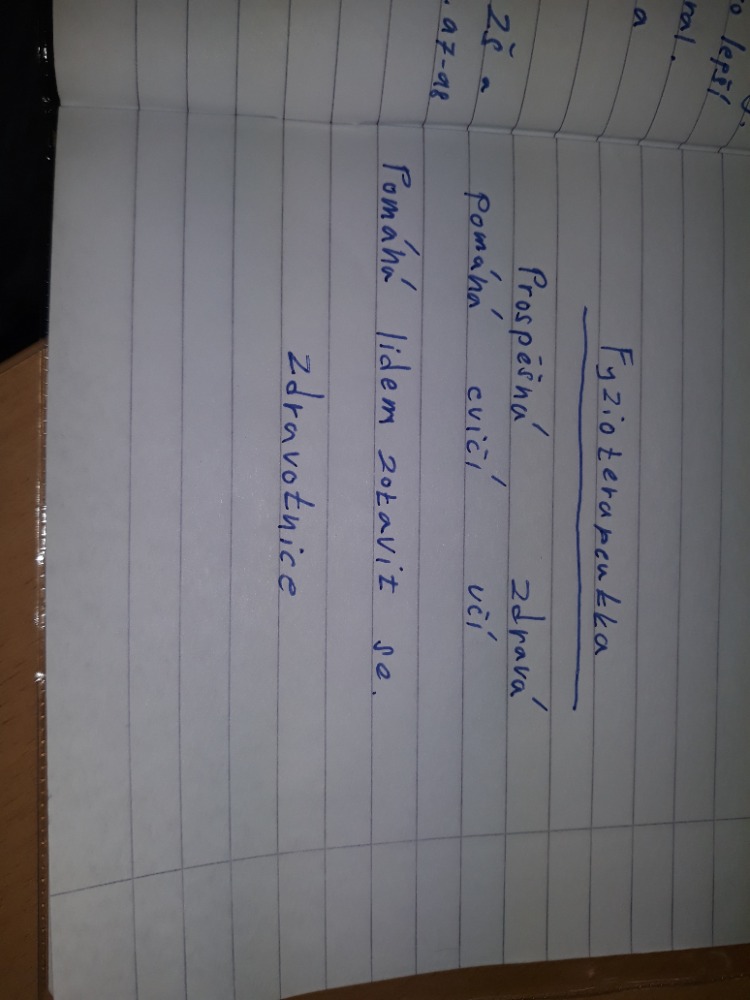 o lepší
nal.
a
ZŠ a
. 97-98
Fyzioterapeutka
Prospěšná zdravá
pomáhá cvičí učí
Pomáhá lidem zotavit se.
Zdravotnice